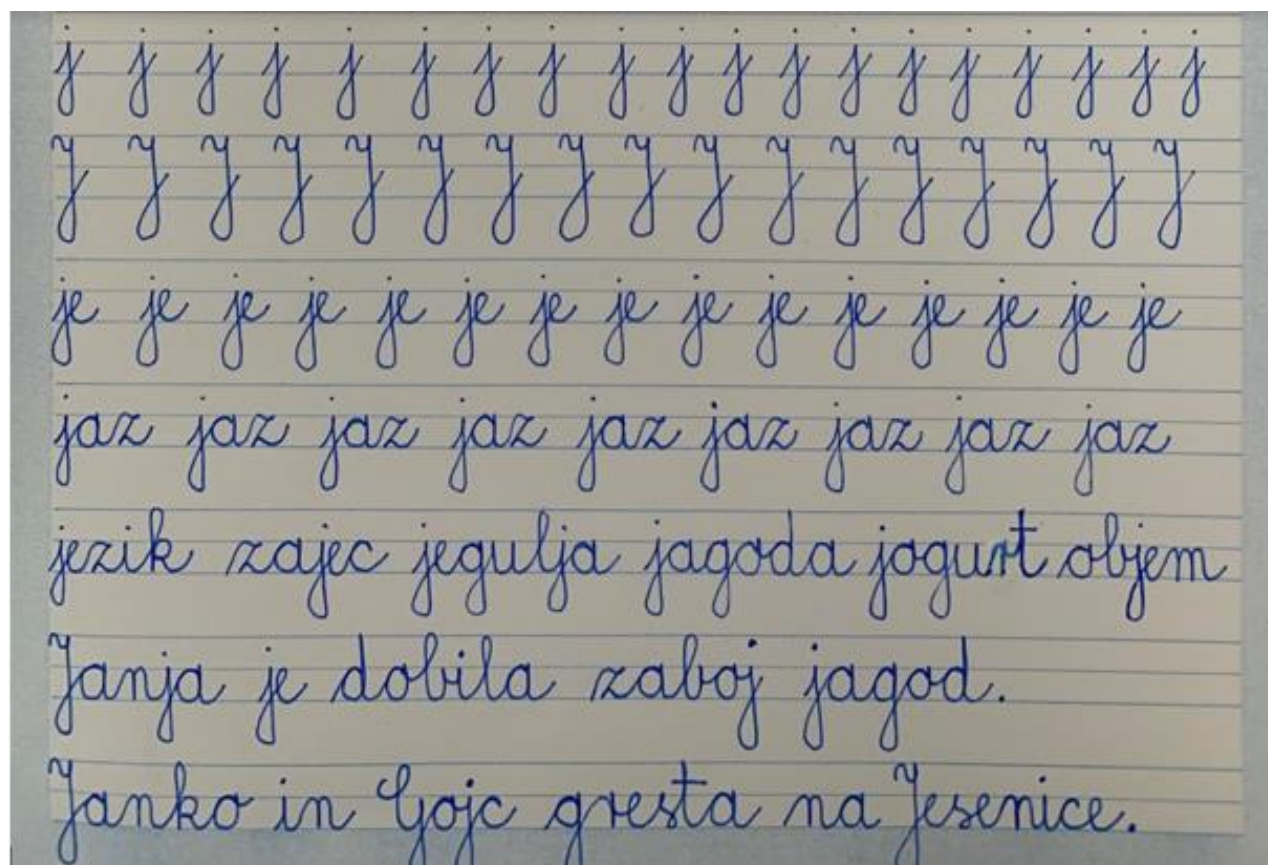 j j j j j j j j j j j j j j j j j j j
J J J J J J J J J J J J J J J J J
je je je je je je je je je je je je je je je
jaz jaz jaz jaz jaz jaz jaz jaz jaz
jezik zajec jegulja jagoda jogurt objem
Janja je dobila zaboj jagod.
Janko in Gojc gresta na Jesenice.